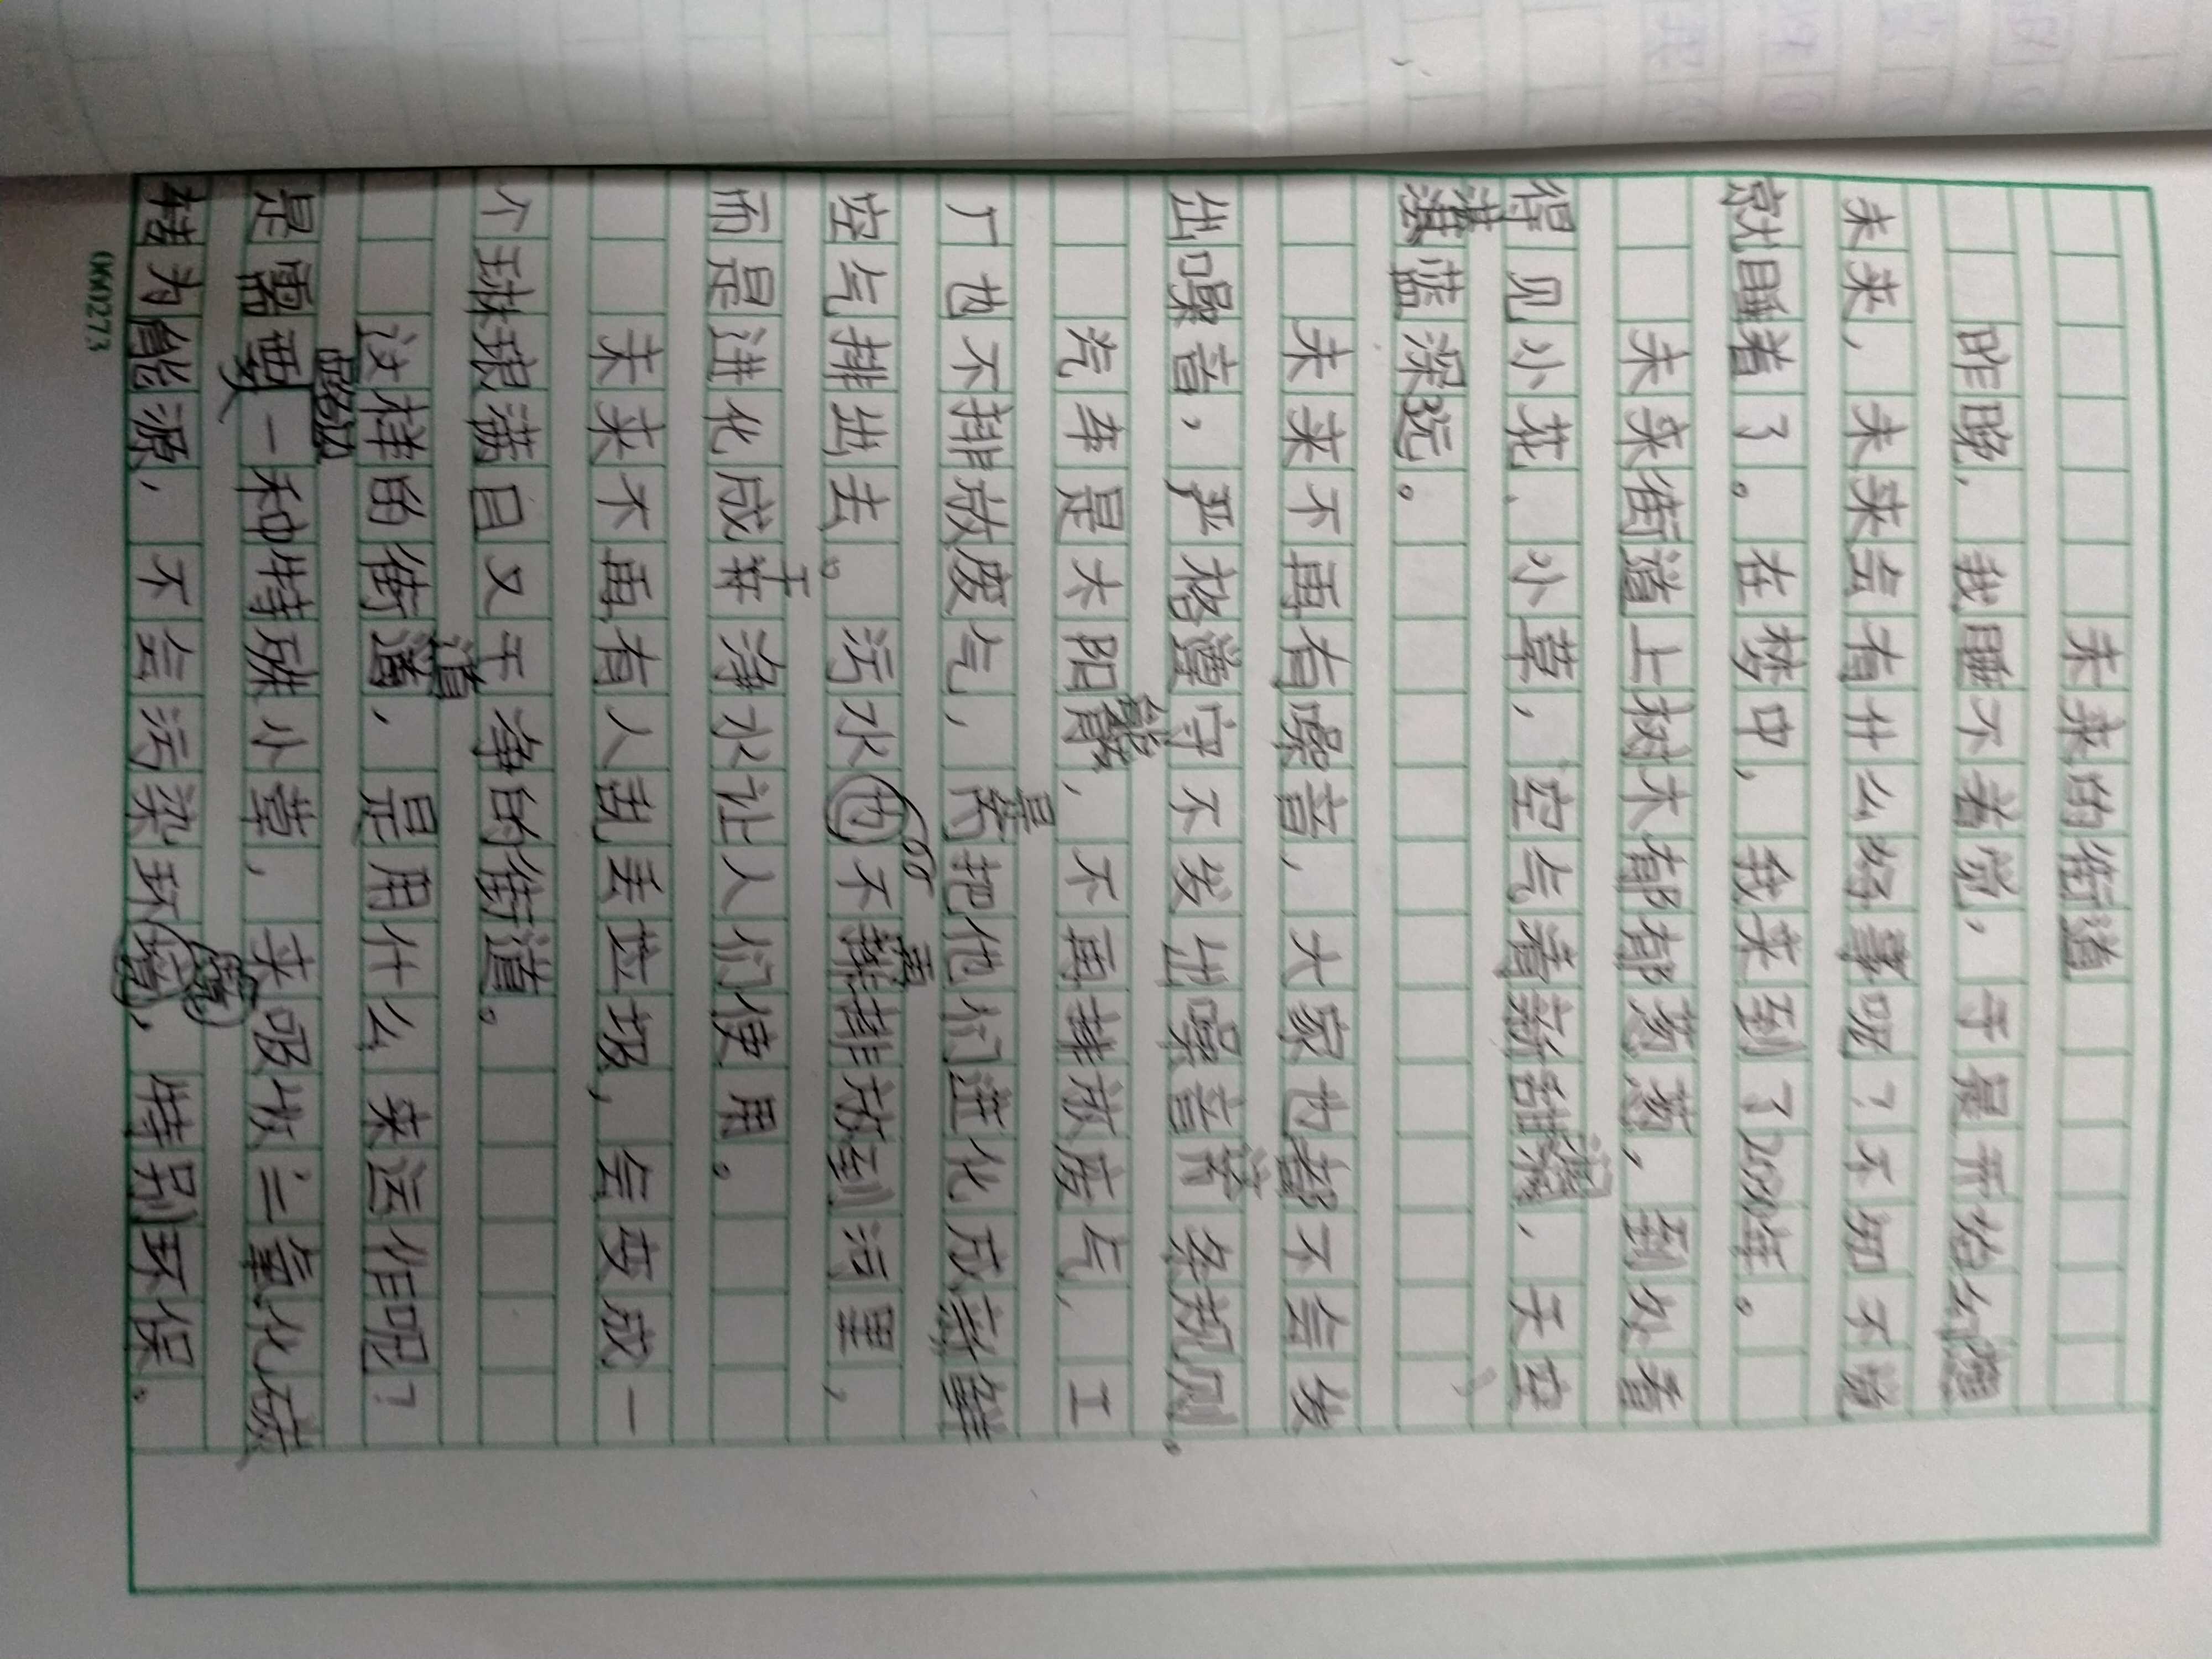 未来的街道
昨晚，我睡不着觉，于是开始幻想
未来，未来会有什么好事呢？不知不觉
就睡着了。在梦中，我来到了20××年。
未来街道上树木都郁郁葱葱，到处看
得见小花、小草，空气清新甜，天空
湛蓝深远。
未来不再有噪音，大家也都不会发
出噪音，严格遵守不发出噪音这条规则。
汽车是太阳能，不再排放废气，工
厂也不排放废气，而是把他们进化成新鲜
空气排出去。污水也不再排放到河里，
而是进化成干净水让人们使用。
未来不再有人乱丢垃圾，会变成一
个球球满目又干净的街道。
这样的街道，是用什么来运作呢？
是需要一种特殊小草，来吸收二氧化碳
转为能源，不会污染环境，特别环保。
00M0273